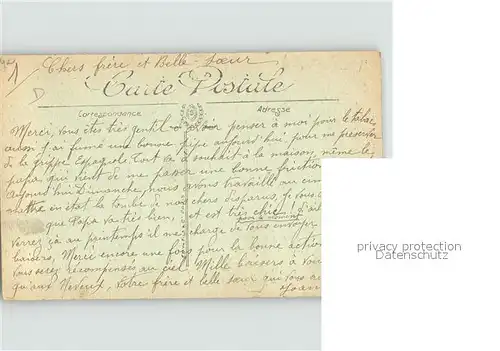 Chers frère et Belle-Sœur
Carte Postale
Correspondance
Adresse
Merci, vous êtes très gentil de penser à moi pour le tabac
aussi j'ai fumé une bonne pipe aujourd'hui pour me préserver
de la grippe Espagnole tout va à souhait à la maison, même le
papa qui vient de me passer une bonne friction
aujourd'hui Dimanche, nous avons travaillé au cim
mettre en état la tombe de nos chers disparus, Je vous
que Papa va très bien, et est très chic!
pour le moment
verrez ça au printemps il me charge de vous envoyer
baisers, Merci encore une fois pour la bonne action
vous serez récompensés au ciel. Mille baisers à vous
qu'aux Neveux, votre frère et belle sœur qui vous
privacy protection
Datenschutz